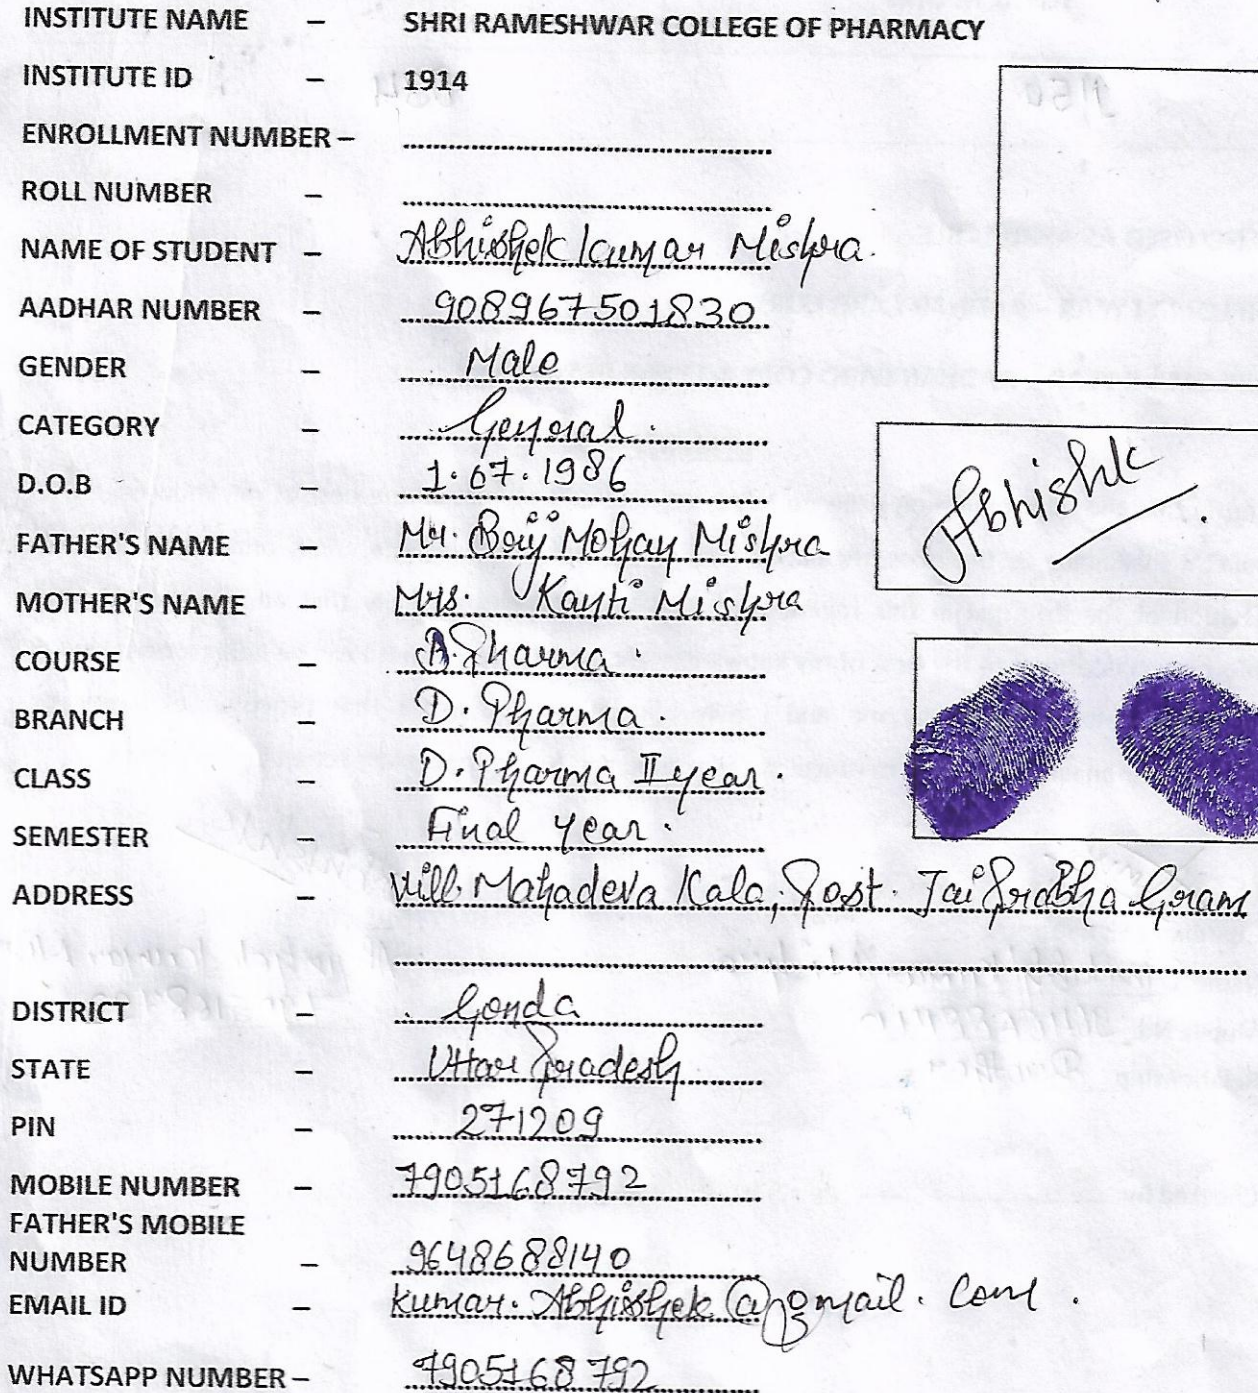 INSTITUTE NAME – SHRI RAMESHWAR COLLEGE OF PHARMACY
INSTITUTE ID – 1914
ENROLLMENT NUMBER –
ROLL NUMBER –
NAME OF STUDENT – Abhishek Kumar Mishra.
AADHAR NUMBER – 908967501830
GENDER – Male
CATEGORY – General.
D.O.B – 1.07.1986
Abhishek
FATHER'S NAME – Mr. Brij Mohan Mishra
MOTHER'S NAME – Mrs. Kanti Mishra
COURSE – Pharma.
BRANCH – D. Pharma.
CLASS – D. Pharma II year.
SEMESTER – Final year.
ADDRESS – Vill. Mahadeva Kala, Post. Jai Prabha Gram
DISTRICT – Gonda
STATE – Uttar Pradesh
PIN – 271209
MOBILE NUMBER – 7905168792
FATHER'S MOBILE
NUMBER – 9648688140
EMAIL ID – kumar.Abhishek@gmail.com.
WHATSAPP NUMBER – 7905168792